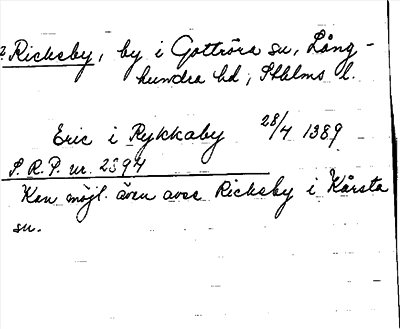 ? Ricksby, by i Gottröra sn, Lång-
hundra hd, Sthlms l.
Eric i Rykkaby 28/4 1389
S.R.P. nr. 2394
Kan möjl. även avse Ricksby i Kårsta
sn.